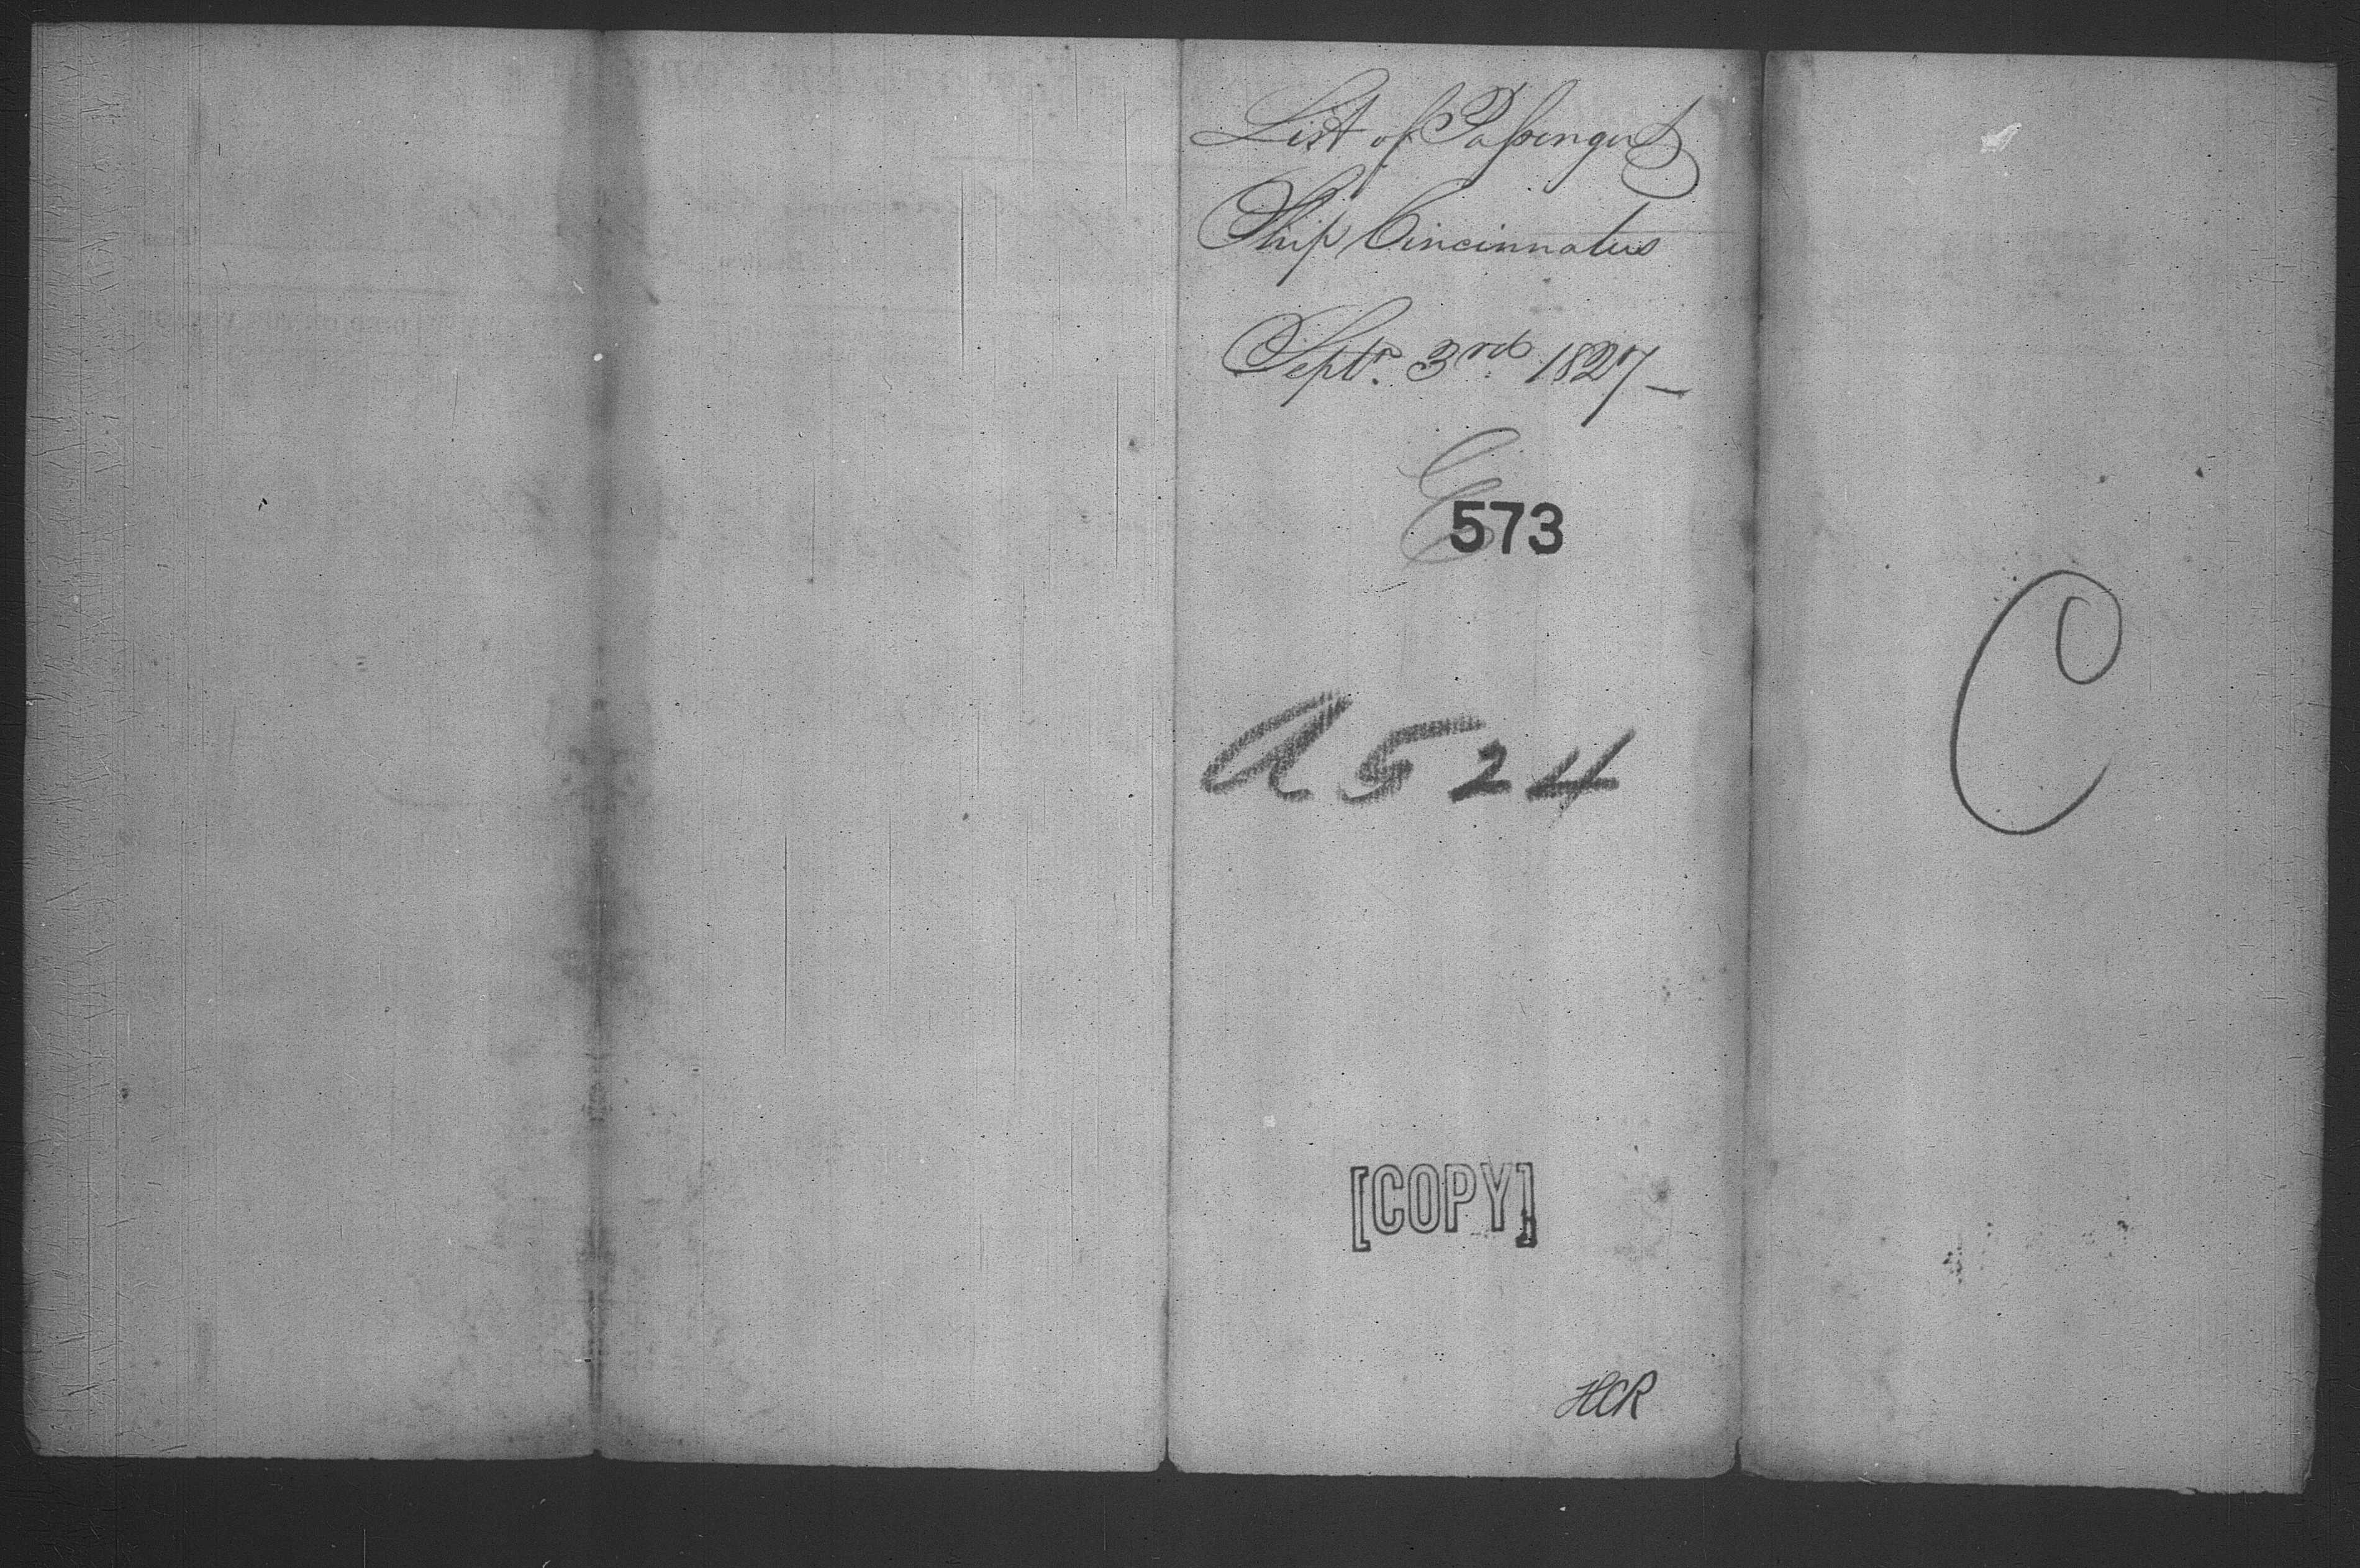 List of Passengers
Ship Cincinnatus
Septr. 3rd 1827—
C
573
A 524
[COPY]
HCR
C